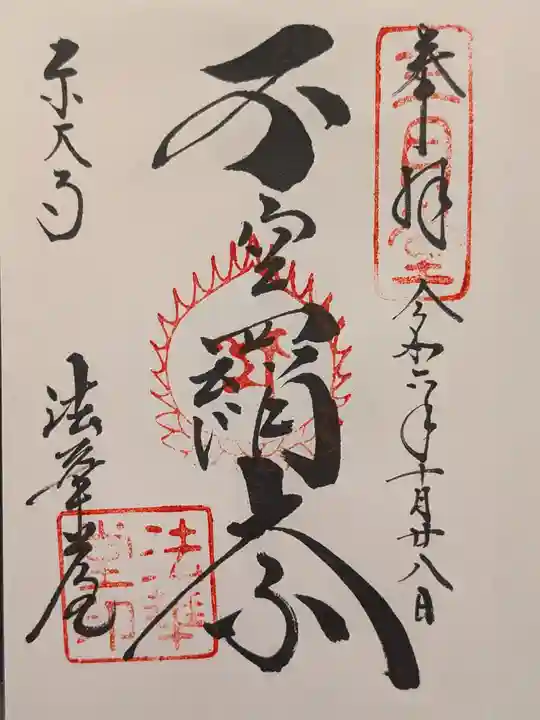 奉拝
令和六年十月廿八日
不空羂索
東大寺
法華堂
法華
堂印